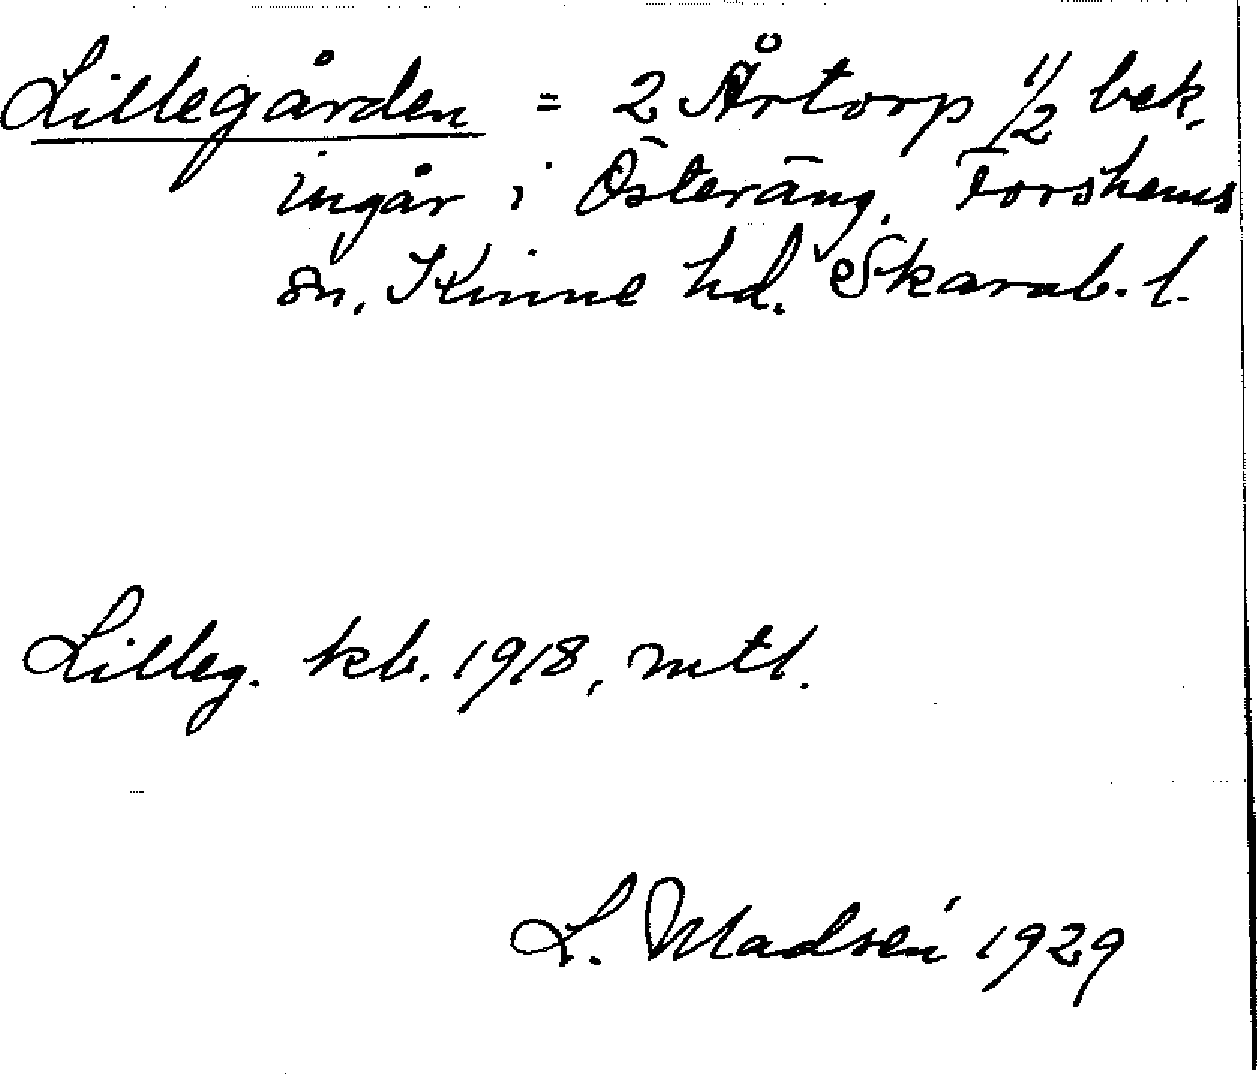 Lillegården = 2 Årtorp 1/2 bek.
ingår i Österäng, Forshems
sn, Kinne hd. Skarab. l.
Lilleg. kb. 1918, mtl.
L. Madsén 1929